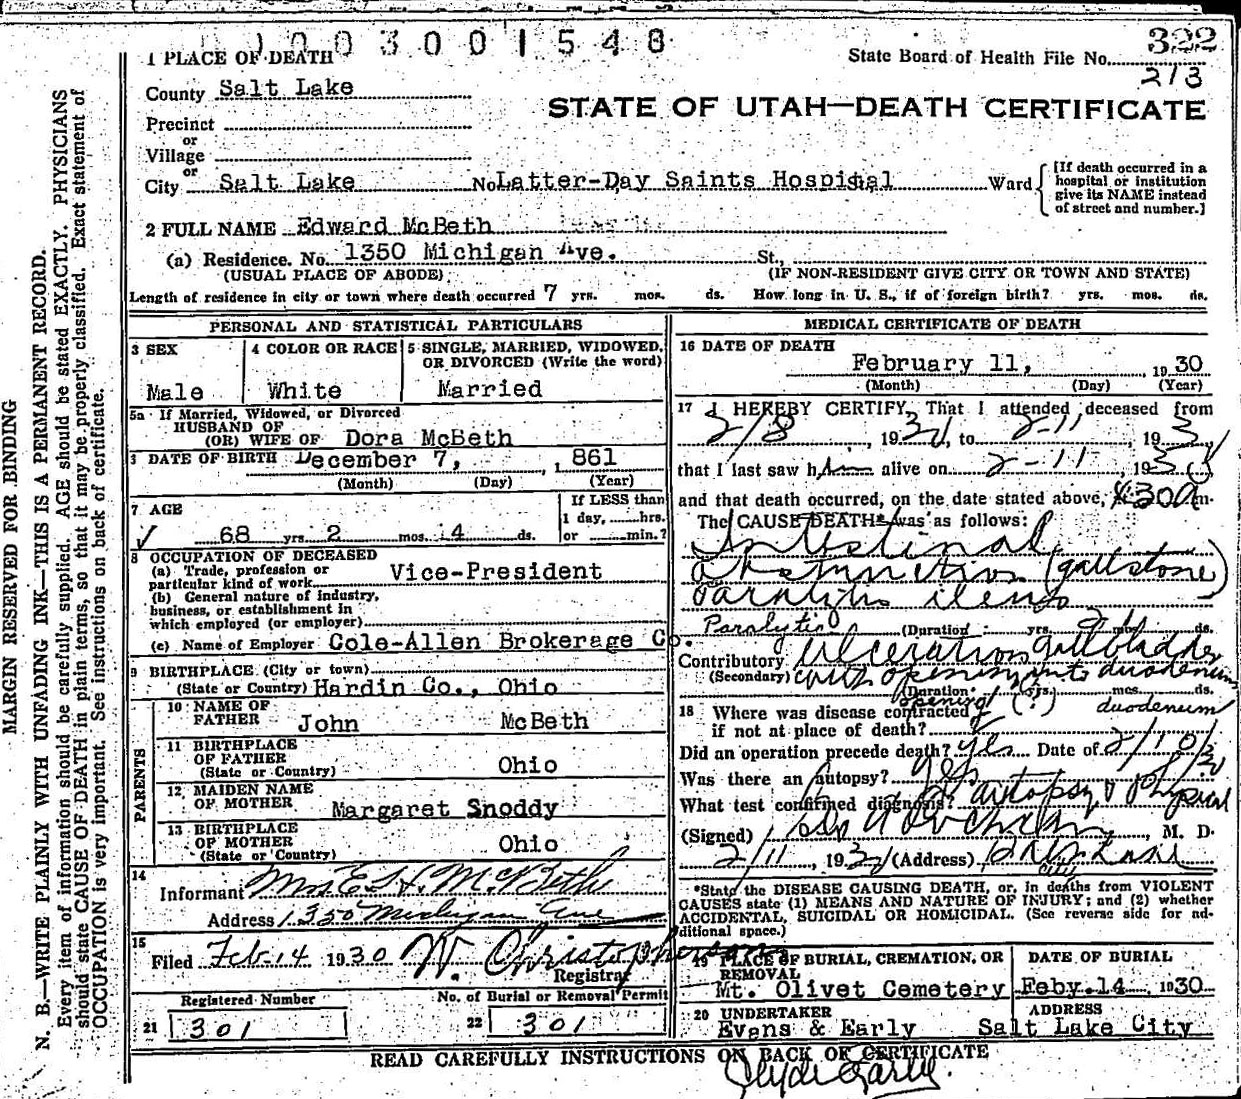 003001548
322
1 PLACE OF DEATH
State Board of Health File No.
213
County Salt Lake
STATE OF UTAH—DEATH CERTIFICATE
Precinct
or
Village
or
City Salt Lake No. Latter-Day Saints Hospital Ward
[If death occurred in a
hospital or institution
give its NAME instead
of street and number.]
2 FULL NAME Edward McBeth
(a) Residence. No. 1350 Michigan Ave. St.,
(USUAL PLACE OF ABODE) (IF NON-RESIDENT GIVE CITY OR TOWN AND STATE)
Length of residence in city or town where death occurred 7 yrs. mos. ds. How long in U. S., if of foreign birth? yrs. mos. ds.
PERSONAL AND STATISTICAL PARTICULARS
3 SEX
Male
4 COLOR OR RACE
White
5 SINGLE, MARRIED, WIDOWED,
OR DIVORCED (Write the word)
Married
5a If Married, Widowed, or Divorced
HUSBAND OF
(OR) WIFE OF Dora McBeth
DATE OF BIRTH December 7, 1861
(Month) (Day) (Year)
7 AGE
68 yrs. 2 mos. 4 ds.
If LESS than
1 day, hrs.
or min.?
8 OCCUPATION OF DECEASED
(a) Trade, profession or
particular kind of work Vice-President
(b) General nature of industry,
business, or establishment in
which employed (or employer)
(c) Name of Employer Cole-Allen Brokerage Co.
9 BIRTHPLACE (City or town)
(State or Country) Hardin Co., Ohio
PARENTS
10 NAME OF
FATHER John McBeth
11 BIRTHPLACE
OF FATHER
(State or Country) Ohio
12 MAIDEN NAME
OF MOTHER Margaret Snoddy
13 BIRTHPLACE
OF MOTHER
(State or Country) Ohio
14
Informant Mrs E. H. McBeth
Address 1350 Michigan Ave
15
Filed Feb-14 1930 W. Christopherson
Registrar
Registered Number
21 301
No. of Burial or Removal Permit
22 301
MEDICAL CERTIFICATE OF DEATH
16 DATE OF DEATH
February 11, 1930
(Month) (Day) (Year)
17 I HEREBY CERTIFY, That I attended deceased from
2/8, 1930, to 2-11, 1930
that I last saw him alive on 2-11, 1930
and that death occurred, on the date stated above, 4:30 A m.
The CAUSE DEATH* was as follows:
Intestinal
obstruction (gallstone)
paralytic ileus
Paralytic (Duration yrs. mos. ds.
Contributory Ulceration gallbladder
(Secondary) with opening into duodenum
(Duration yrs. mos. ds.
opening (?) duodenum
18 Where was disease contracted
if not at place of death?
Did an operation precede death? Yes Date of 2/10/30
Was there an autopsy? Yes
What test confirmed diagnosis? autopsy & physical
(Signed) M. D.
2/11, 1930 (Address) Salt Lake
City
*State the DISEASE CAUSING DEATH, or, in deaths from VIOLENT
CAUSES state (1) MEANS AND NATURE OF INJURY; and (2) whether
ACCIDENTAL, SUICIDAL OR HOMICIDAL. (See reverse side for ad-
ditional space.)
19 PLACE OF BURIAL, CREMATION, OR
REMOVAL
Mt. Olivet Cemetery
DATE OF BURIAL
Feby. 14 1930
20 UNDERTAKER
Evans & Early
ADDRESS
Salt Lake City
READ CAREFULLY INSTRUCTIONS ON BACK OF CERTIFICATE
Clyde Early
MARGIN RESERVED FOR BINDING
N. B.—WRITE PLAINLY WITH UNFADING INK—THIS IS A PERMANENT RECORD.
Every item of information should be carefully supplied. AGE should be stated EXACTLY. PHYSICIANS
should state CAUSE OF DEATH in plain terms, so that it may be properly classified. Exact statement of
OCCUPATION is very important. See instructions on back of certificate.